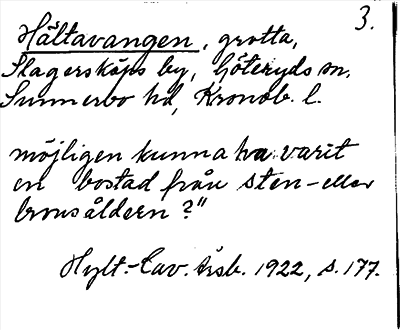 3.
Hältavangen, grotta,
Slagersköps by, Göteryds sn,
Sunnerbo hd, Kronob. l.
möjligen kunna ha varit
en bostad från sten- eller
bronsåldern?"
Hylt.-Cav. Årsb. 1922, s. 177.